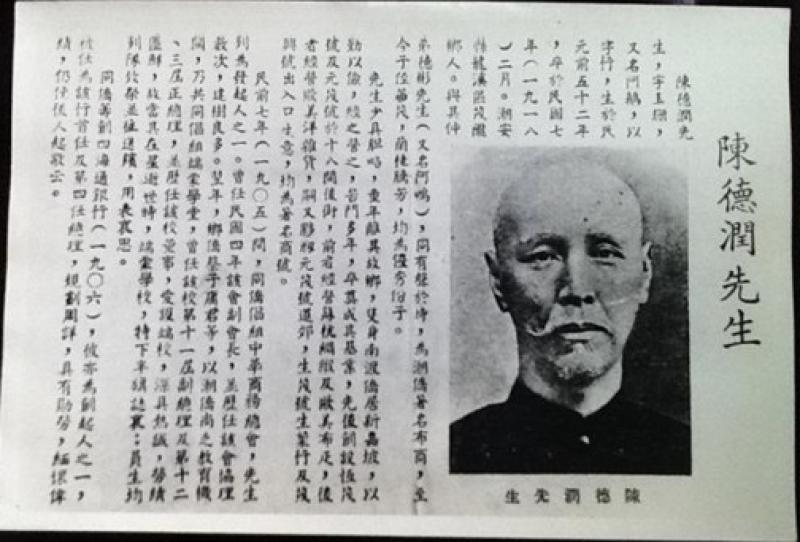 陳德潤先生
陳德潤先
生,字玉
又名門鵝,以
字行,生於民
元前五十二年
,卒於民國七
年(一九一八
)二月。潮安
縣龍溪區茂
鄉人。與其仲
弟德彬先生(又名阿鳴),同有聲於時,為潮僑著名布商,至
今子侄蕃茂,蘭桂騰芳,均為優秀份子。
先生少具膽略,童年離其故鄉,隻身南渡僑居新嘉坡,以
勤以儉,經之營之,若干多年,卒奠成其基業,先後創設恆茂
號及元茂號於十八間後街,前者經營蘇杭綢緞及歐美布疋,後
者經營歐美洋雜貨,嗣又夥組元茂號通郊,生茂號生菓行及茂
興號出入口生意,均為著名商號。
民前七年(一九〇五)間,同僑倡組中華商務總會,先生
列為發起人之一。曾任民國四年該會副會長,並歷任該會協理
數次,建樹良多。翌年,鄉僑蔡子庸君等,以潮僑尚乏教育機
關,乃共同倡組端蒙學堂,曾任該校第十一屆副總理及第十二
、三屆正總理,並歷任該校董事,愛護端校,深具熱誠,勞績
匪鮮,故當其在星逝世時,端蒙學校,特下半旗誌哀;員生均
列隊致祭並往送殯,用表哀思。
同僑籌創四海通銀行(一九〇六),彼亦為創起人之一,
被任為該行首任及第四任總理,規劃周詳,具有勛勞,緬懷偉
績,仍使後人起敬云。
陳德潤先生